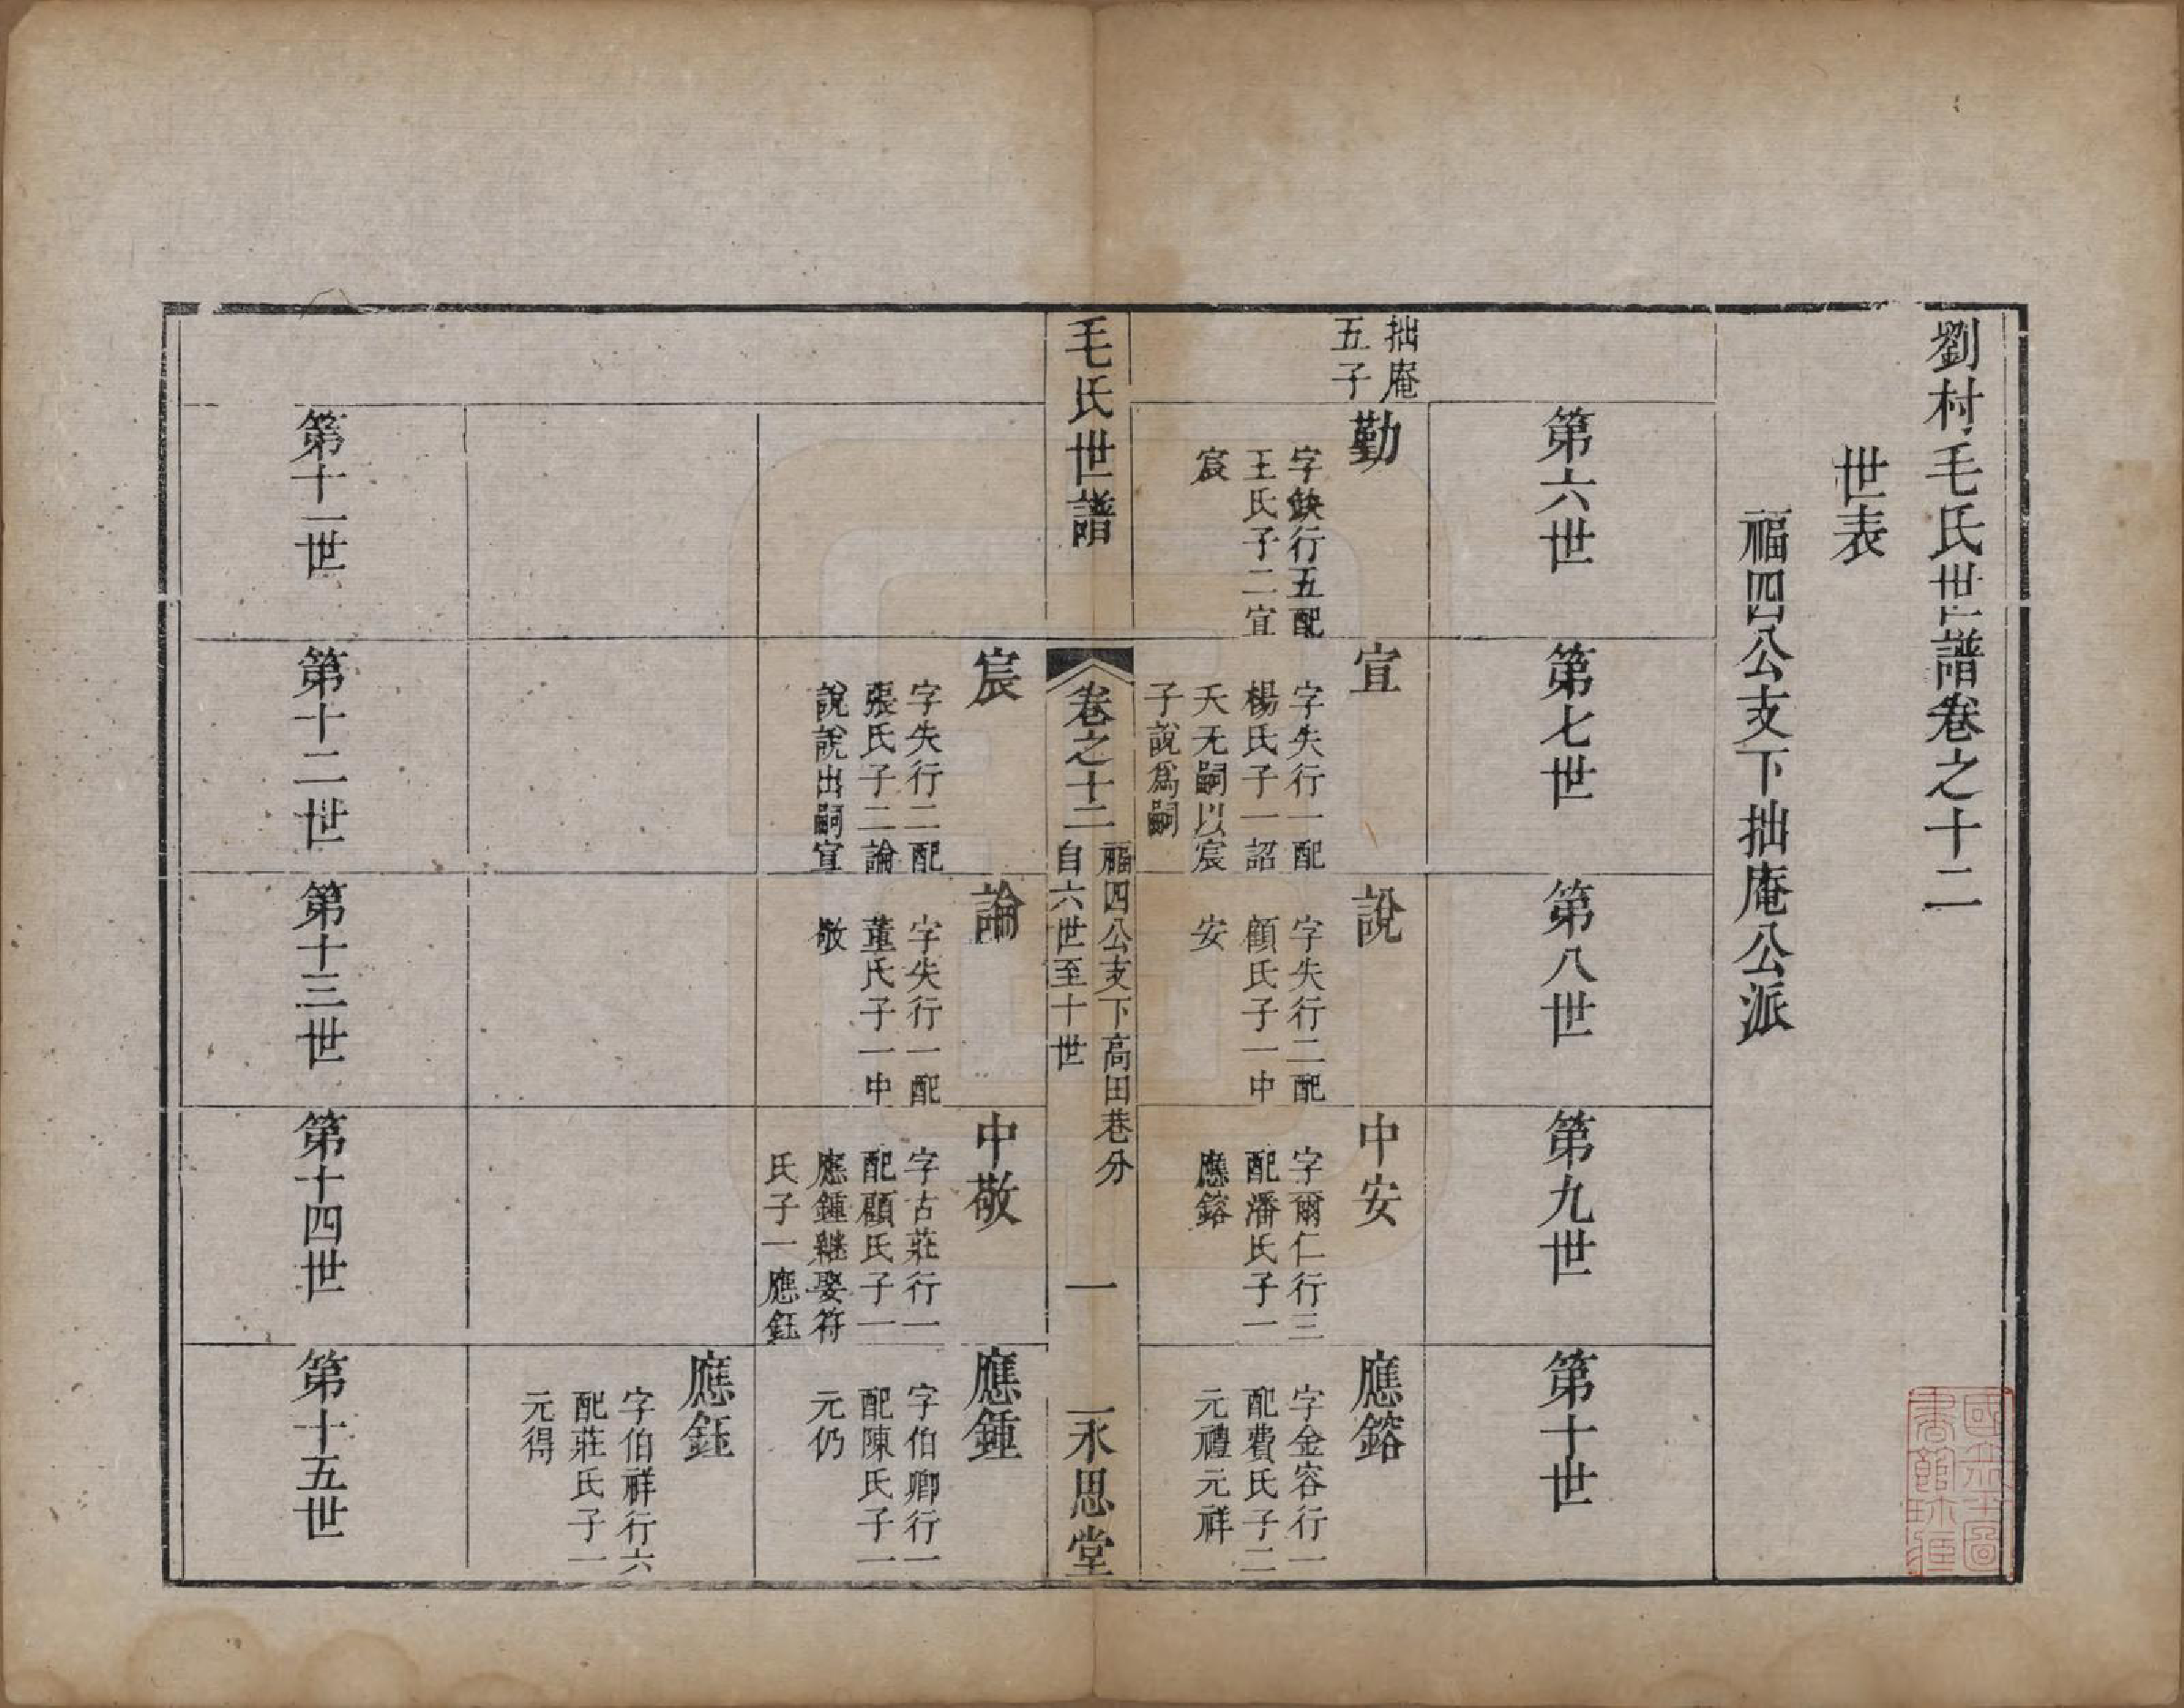 劉村毛氏世譜卷之十二
世表
福四公支下拙庵公派
第六世
第七世
第八世
第九世
第十世
拙庵
五子
勤
字缺行五配
王氏子二宜
宸
宜
字失行一配
楊氏子一詔
夭无嗣以宸
子說為嗣
說
字失行二配
顧氏子一中
安
中安
字爾仁行三
配潘氏子一
應鎔
應鎔
字金容行一
配費氏子二
元禮元祥
毛氏世譜
卷之十二
福四公支下高田巷分
自六世至十世
一
永思堂
宸
字失行二配
張氏子二論
說說出嗣宜
論
字失行一配
董氏子一中
敬
中敬
字古莊行一
配顧氏子一
應鍾繼娶符
氏子一應鈺
應鍾
字伯卿行一
配陳氏子一
元仍
應鈺
字伯祥行六
配莊氏子一
元得
第十一世
第十二世
第十三世
第十四世
第十五世